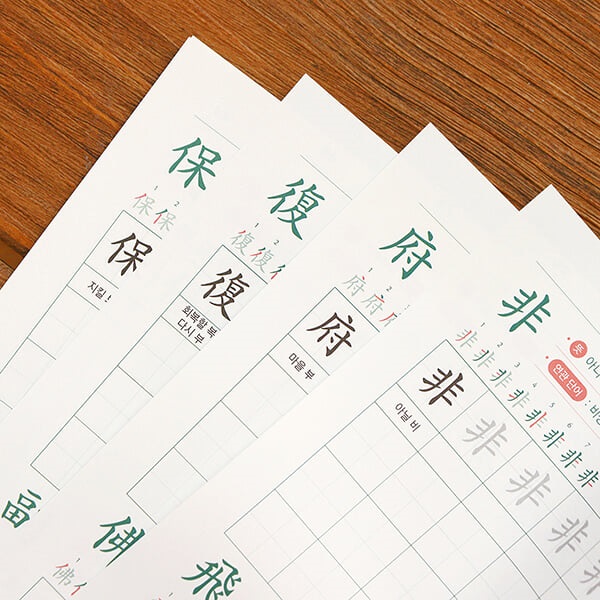 保
1 2
保保
保
지킬 보
福
復
1 2
復復
復
회복할 복
다시 부
佛
1
佛
府
1 2
府府府
府
마을 부
飛
非
뜻
연관 단어
1 2 3 4 5 6 7
非非非非非非非
非非非非非
아닐 비